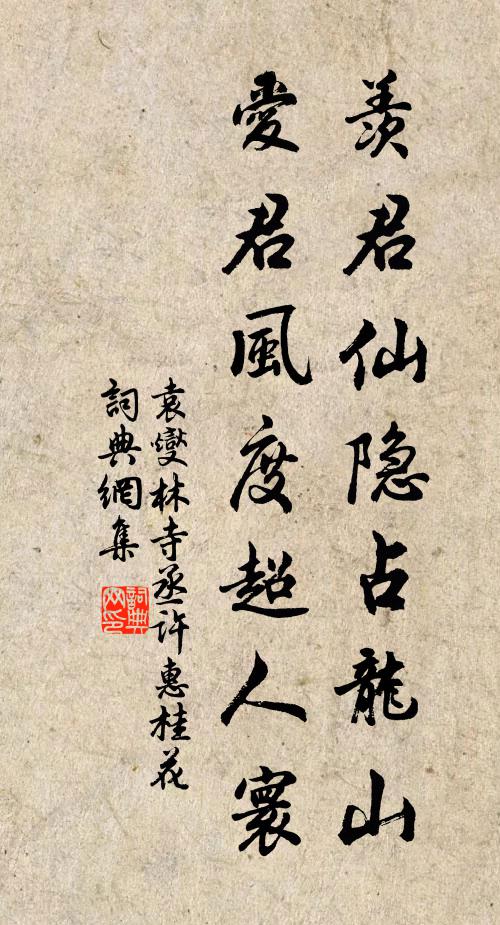 羨君仙隐占龍山
愛君風度超人寰
袁燮林寺丞許惠桂花
詞典網集
詞典网印